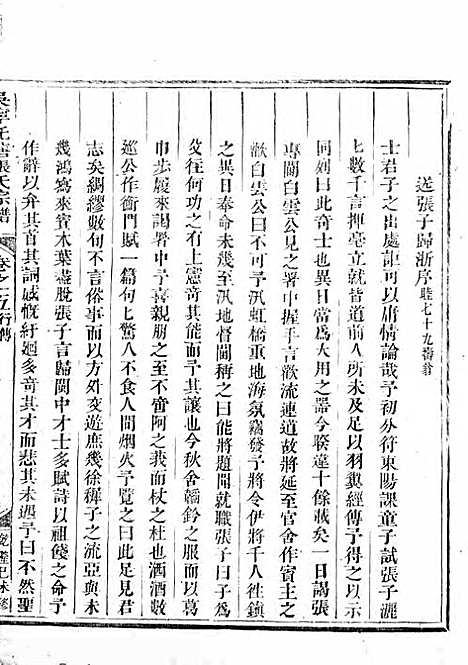 送張子歸浙序 睦七十九壽翁
士君子之出處詎可以庸情論哉予初分符東陽課童子試張子灑
七數千言押毫立就皆道前人所未及足以羽翼經傳予得之以示
同列曰此奇士也異日當爲大用之器今睽違十餘載矣一日謁張
專閫白雲公見之署中握手言歡流連道故將延至官舍作賓主之
歡白雲公曰不可汛虹橋重地海氛竊發予將令伊將千人往鎮
之異日奉命未幾予至汛地督閫稱之曰能將題聞就職張子曰予爲
往何功之有上憲奇其能而予奇其讓也今秋舍韜鈐之服而以葛
巾歩履來謁署中予親之至不啻阿之莪而杖之杜也酒酒數
巡公作衡門賦一篇句七驚人不食人間烟火予覽之曰此足見君
志矣綢繆款七俗事以百方外交遊庶幾徐穉子之流亞與未
幾鴻寫來賓木葉盡脫張子言歸閩中才士多賦詩以祖餞之命予
作辭以弁其首其詞誠慨紆廻多奇其才而悲其未遇予曰不然聖
張氏宗譜
卷之一
行傳